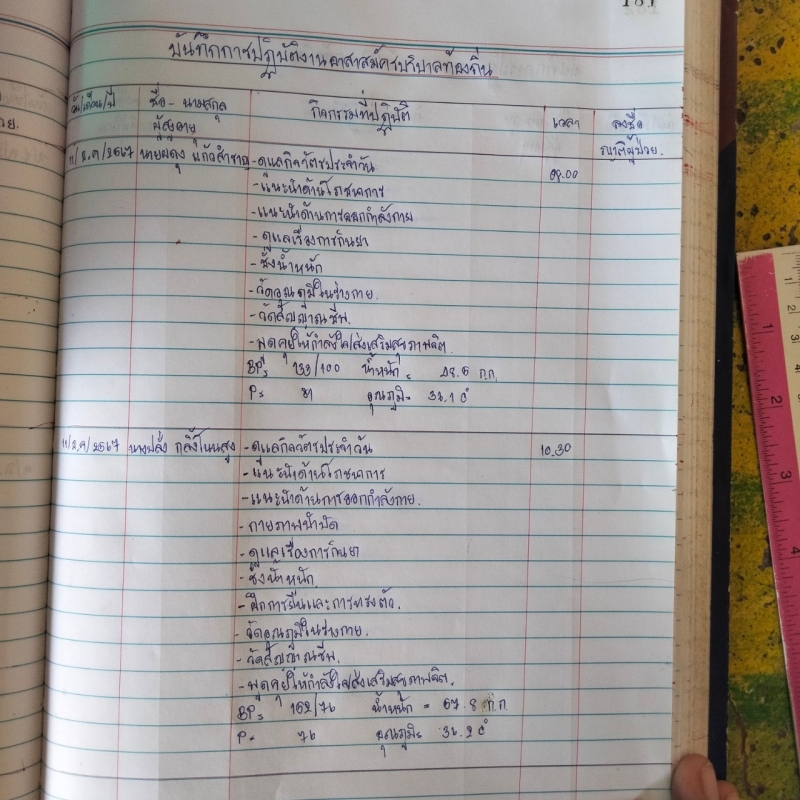 181
บันทึกการปฏิบัติงานอาสาสมัครบริบาลท้องถิ่น
วัน/เดือน/ปี ชื่อ - นามสกุล ผู้สูงอายุ กิจกรรมที่ปฏิบัติ เวลา ลงชื่อ ญาติผู้ป่วย.
11/ธ.ค/2567 นายผดุง แก้วสำราญ - ดูแลกิจวัตรประจำวัน 09.00
- แนะนำด้านโภชนาการ
- แนะนำด้านการออกกำลังกาย
- ดูแลเรื่องการกินยา
- ชั่งน้ำหนัก
- วัดอุณภูมิในร่างกาย.
- วัดสัญญาณชีพ.
- พูดคุยให้กำลังใจ/ส่งเสริมสุขภาพจิต.
BP = 133/100 น้ำหนัก = 48.6 ก.ก.
P = 81 อุณภูมิ = 36.1 c°
11/ธ.ค/2567 นางปลั่ง กลิ้งโนนสูง - ดูแลกิจวัตรประจำวัน 10.30
- แนะนำด้านโภชนาการ
- แนะนำด้านการออกกำลังกาย.
- กายภาพบำบัด
- ดูแลเรื่องการกินยา
- ชั่งน้ำหนัก.
- ฝึกการยืนและการทรงตัว.
- วัดอุณภูมิในร่างกาย.
- วัดสัญญาณชีพ.
- พูดคุยให้กำลังใจ/ส่งเสริมสุขภาพจิต.
BP = 162/76 น้ำหนัก = 67.8 ก.ก
P = 76 อุณภูมิ = 36.2 c°
1
2
3
4
1
2
3